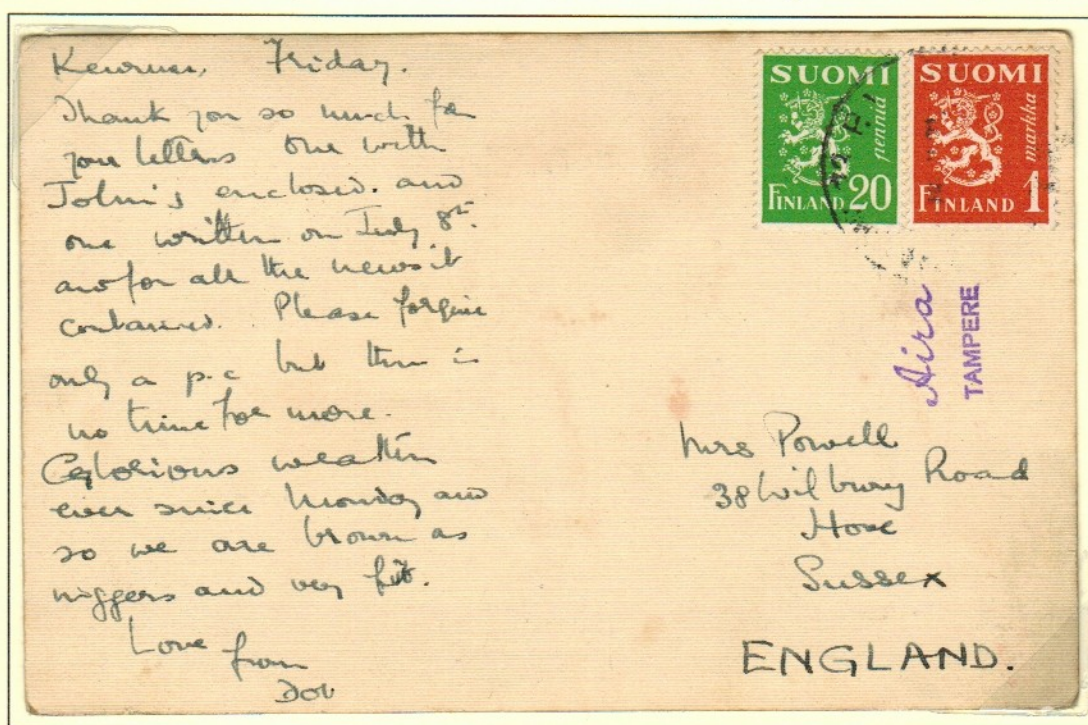 Keuruu, Friday.
Thank you so much for
your letters one with
John's enclosed. and
one written on July 8th
and for all the news it
contained. Please forgive
only a p.c but there is
no time for more.
Glorious weather
ever since Monday and
so we are brown as
niggers and very fit.
Love from
Dot
SUOMI
pennia
FINLAND 20
SUOMI
markka
FINLAND 1
Aira
TAMPERE
Mrs Powell
38 Wilbury Road
Hove
Sussex
ENGLAND.